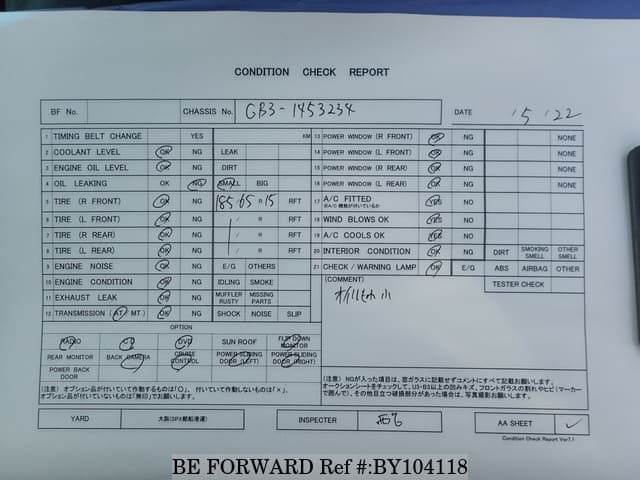 CONDITION CHECK REPORT
BF No. CHASSIS No. GB3-1453234 DATE '5 '22
1 TIMING BELT CHANGE YES KM 13 POWER WINDOW (R FRONT) OK NG NONE
2 COOLANT LEVEL OK NG LEAK 14 POWER WINDOW (L FRONT) OK NG NONE
3 ENGINE OIL LEVEL OK NG DIRT 15 POWER WINDOW (R REAR) OK NG NONE
4 OIL LEAKING OK NG SMALL BIG 16 POWER WINDOW (L REAR) OK NG NONE
5 TIRE (R FRONT) OK NG 185/65 R 15 RFT 17 A/C FITTED YES NO
※A/C機能が付いているか
6 TIRE (L FRONT) OK NG / R RFT 18 WIND BLOWS OK YES NO
7 TIRE (R REAR) OK NG / R RFT 19 A/C COOLS OK YES NO
8 TIRE (L REAR) OK NG / R RFT 20 INTERIOR CONDITION OK NG DIRT SMOKING SMELL OTHER SMELL
9 ENGINE NOISE OK NG E/G OTHERS 21 CHECK / WARNING LAMP OK E/G ABS AIRBAG OTHER
10 ENGINE CONDITION OK NG IDLING SMOKE (COMMENT) TESTER CHECK
11 EXHAUST LEAK OK NG MUFFLER RUSTY MISSING PARTS
12 TRANSMISSION (AT/ MT) OK NG SHOCK NOISE SLIP
OPTION
RADIO CD DVD SUN ROOF FLIP DOWN MONITOR
REAR MONITOR BACK CAMERA CRUISE CONTROL POWER SLIDING DOOR (LEFT) POWER SLIDING DOOR (RIGHT)
POWER BACK DOOR
(注意) オプション品が付いていて作動するものは「○」、付いていて作動しないものは「×」、
オプション品が付いていないものは「無印」でお願いします。
(注意) NGが入った項目は、窓ガラスに記載せずコメントにすべて記載お願いします。
オークションシートをチェックして、U3・B3以上の凹みキズ、フロントガラスの割れやヒビ(マーカーで囲んで)、その他目立つ破損部分があった場合は、写真撮影お願いします。
YARD 大阪(SPX郵船港運) INSPECTER AA SHEET ✓
Condition Check Report Ver7.1
BE FORWARD Ref #:BY104118